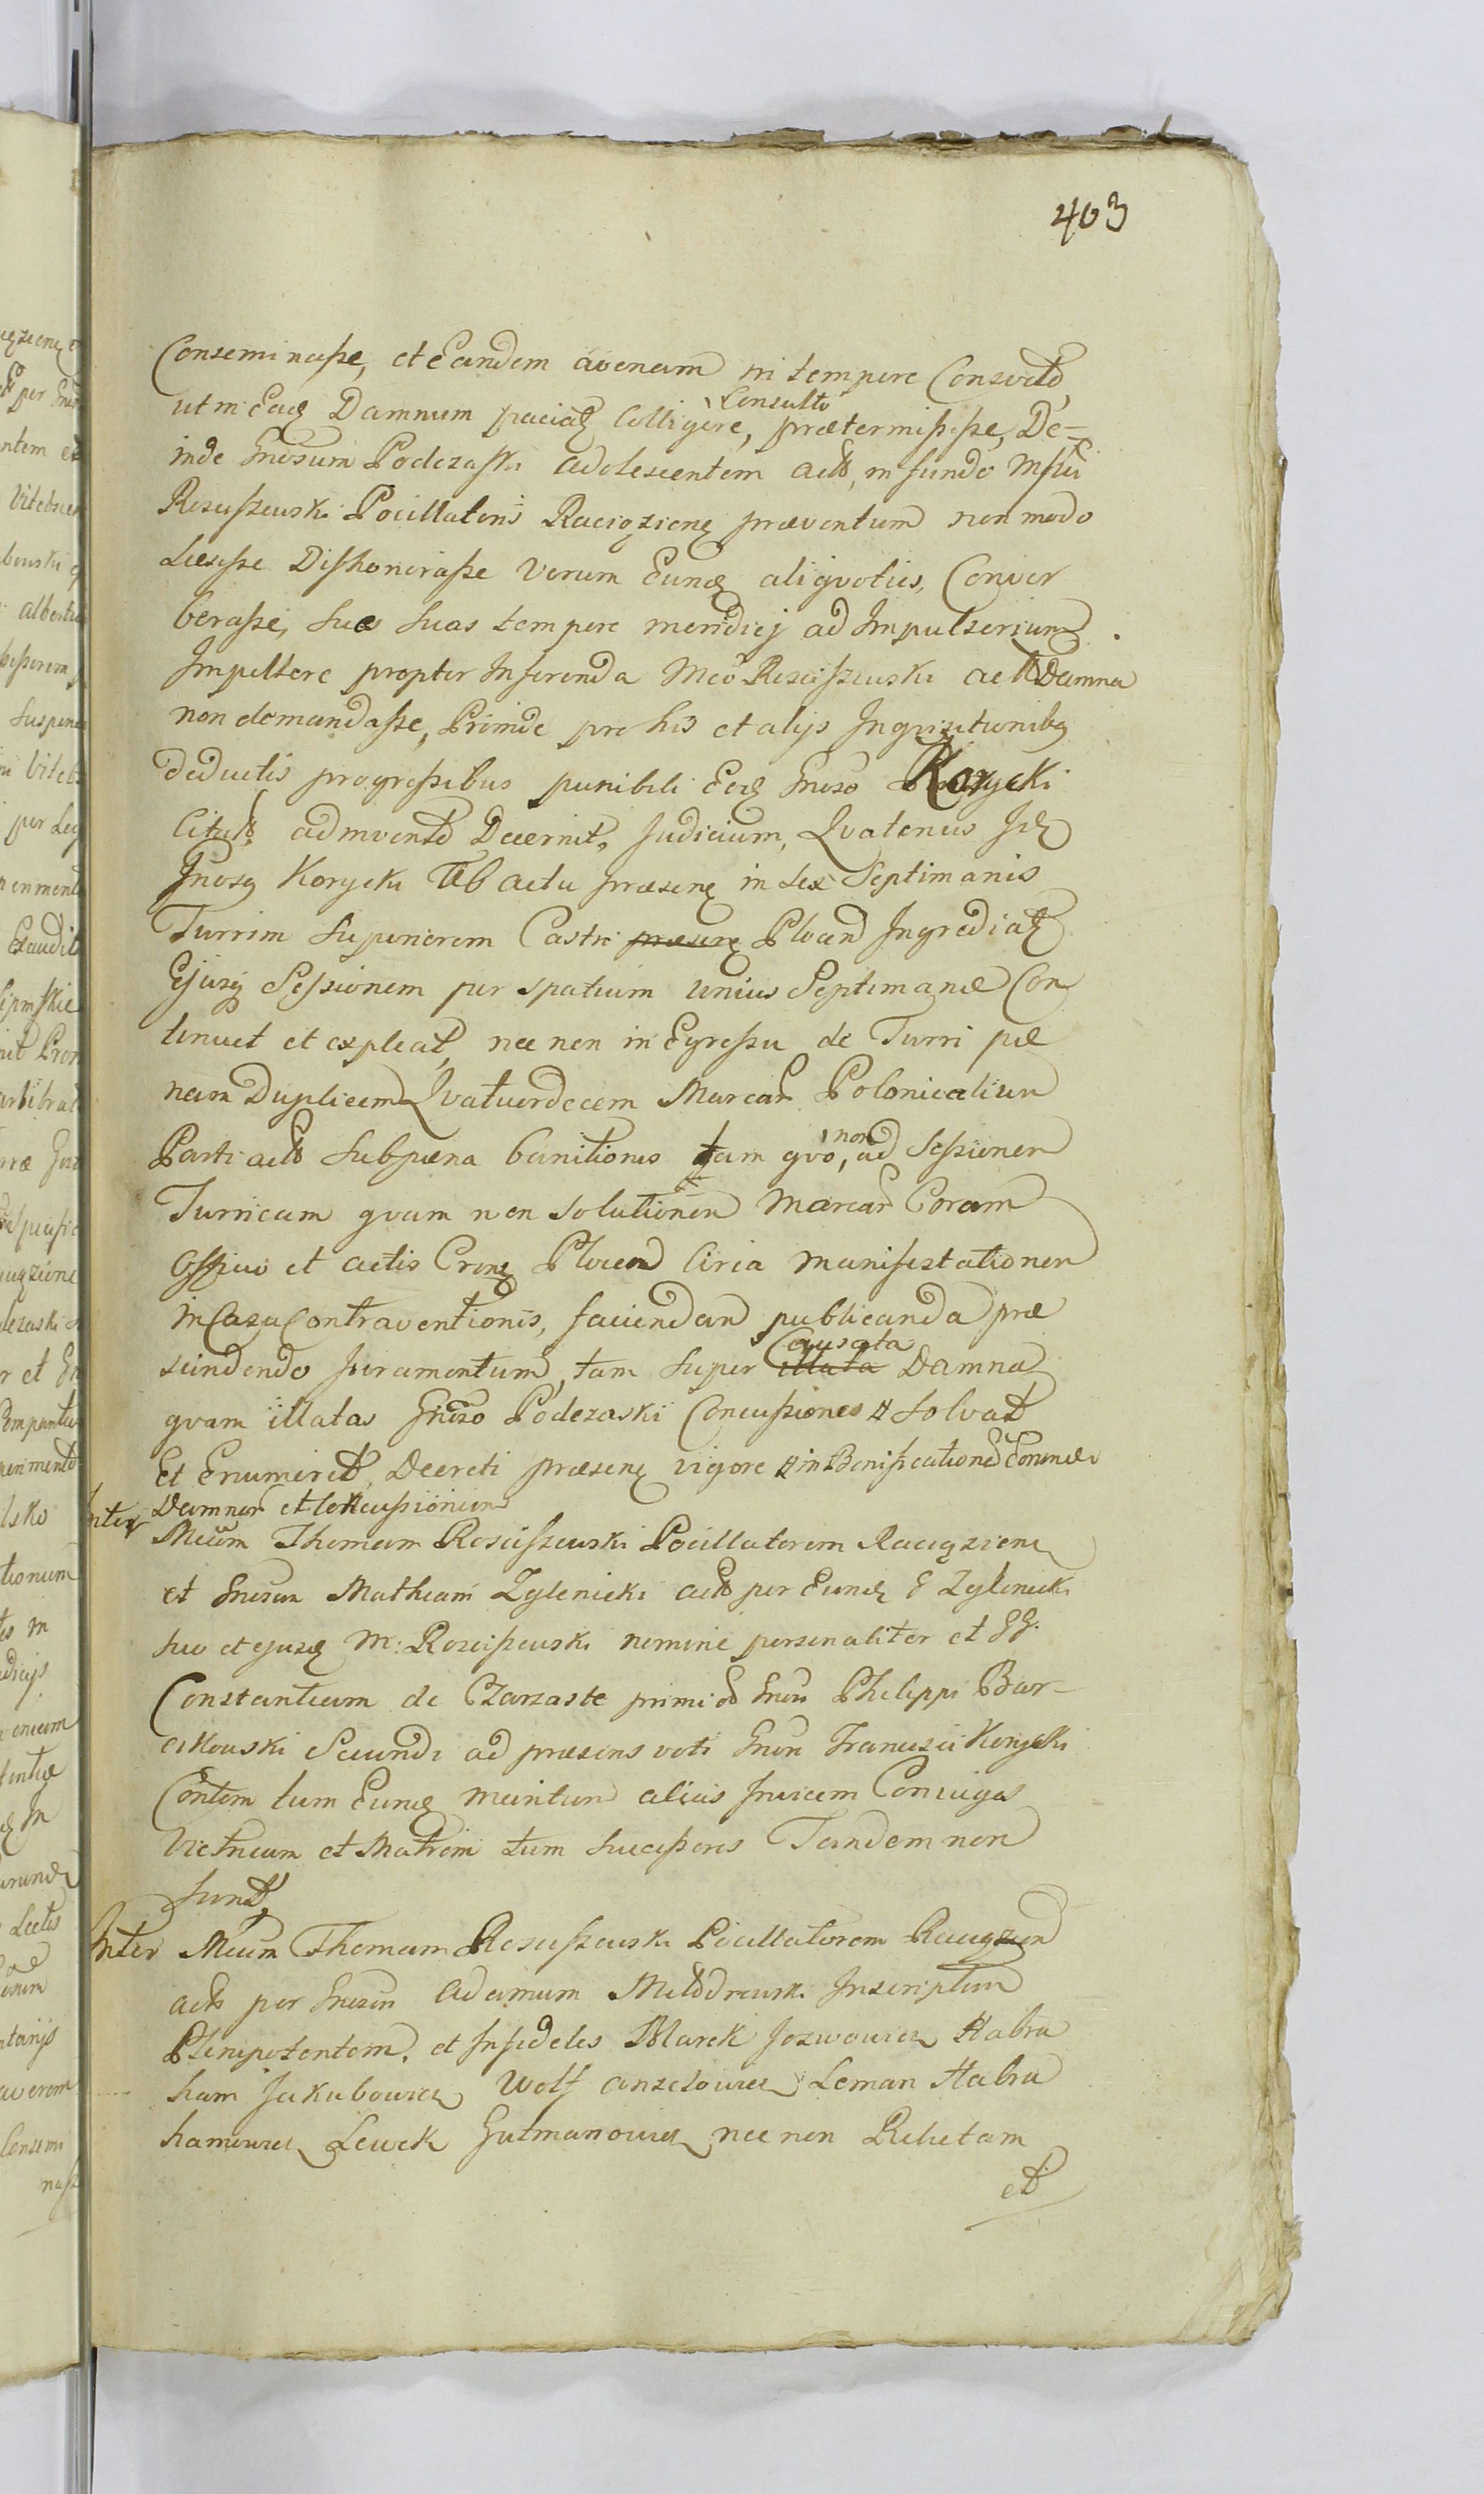 403
Conseminasse, et Eandem avenam in tempore Consveto,
ut in Eadq Damnum paciatq Colligere, Consulto prætermisisse, De-
inde Gnosum Podczaski adolescentem actb, in fundo Mfci
Rosciszewski Pocillatoris Raciążeng præventum non modo
Læsisse Dishonorasse Verum Eundq aliqvoties, Conver
berasse, Sues Suas tempore meridiej ad Impulsorium
Impellere propter Inferenda Mco Rosciszewski actb Damna
non demandasse, Proinde pro his et alijs Inqvisitionibq
deductis progressibus punibili Eodq Gnoso Korycki
Citatb, admvento Decernit, Judicium, Qvatenus Idq
Gnosq Korycki Ab actu præseng in sex Septimanis
Turrim Superiorem Castri præseng Plocen Ingrediatq
Ejusq Sessionem per spatium unius Septimanæ Con
tinuet et expleat, nec non in Egressu de Turri pæ
nam Duplicem Qvatuordecem Marcar Polonicalium
Parti actb Sub pæna banitionis tam qvo, non ad Sessionem
Turricam qvam non solutionem Marcar Coram
Officio et actis Crng Plocen Circa manifestationem
in Casu Contraventionis, faciendam publicanda præ
scindendo juramentum, tam Super illata Causata Damna
qvam illatas Gnoso Podczaski Concussiones # Solvat
Et Enumeret, Decreti præseng vigore # in Bonificationem Eorundq
Damnor et Concussionum
Inter Mcum Thomam Rosciszewski Pocillatorem Raciążeng
et Gnosum Mathiam Zglenicki actb per Eundq G Zglenicki
suo et ejusdq M: Rosciszewski nomine personaliter et GG.
Constantiam de Czarzaste primi Gnosi Philippi Bar-
cikowski Secundi ad præsens voti Gnosi Francisci Korycki
Contem tum Eundq maritum alias Invicem Conjuges
Vitricum et Matrem tum Successores Tandem non
sunt,
Inter Mcum Thomam Rosciszewski Pocillatorem Raciążen
actb per Gnosum Adamum Młodzewski Inscriptum
Plenipotentem, et Infideles Marek Jozwowicz Habra
ham Jakubowicz Wolf anszelowicz Leman Habra
hamowicz Lewek Gutmanowicz nec non Relictam
et